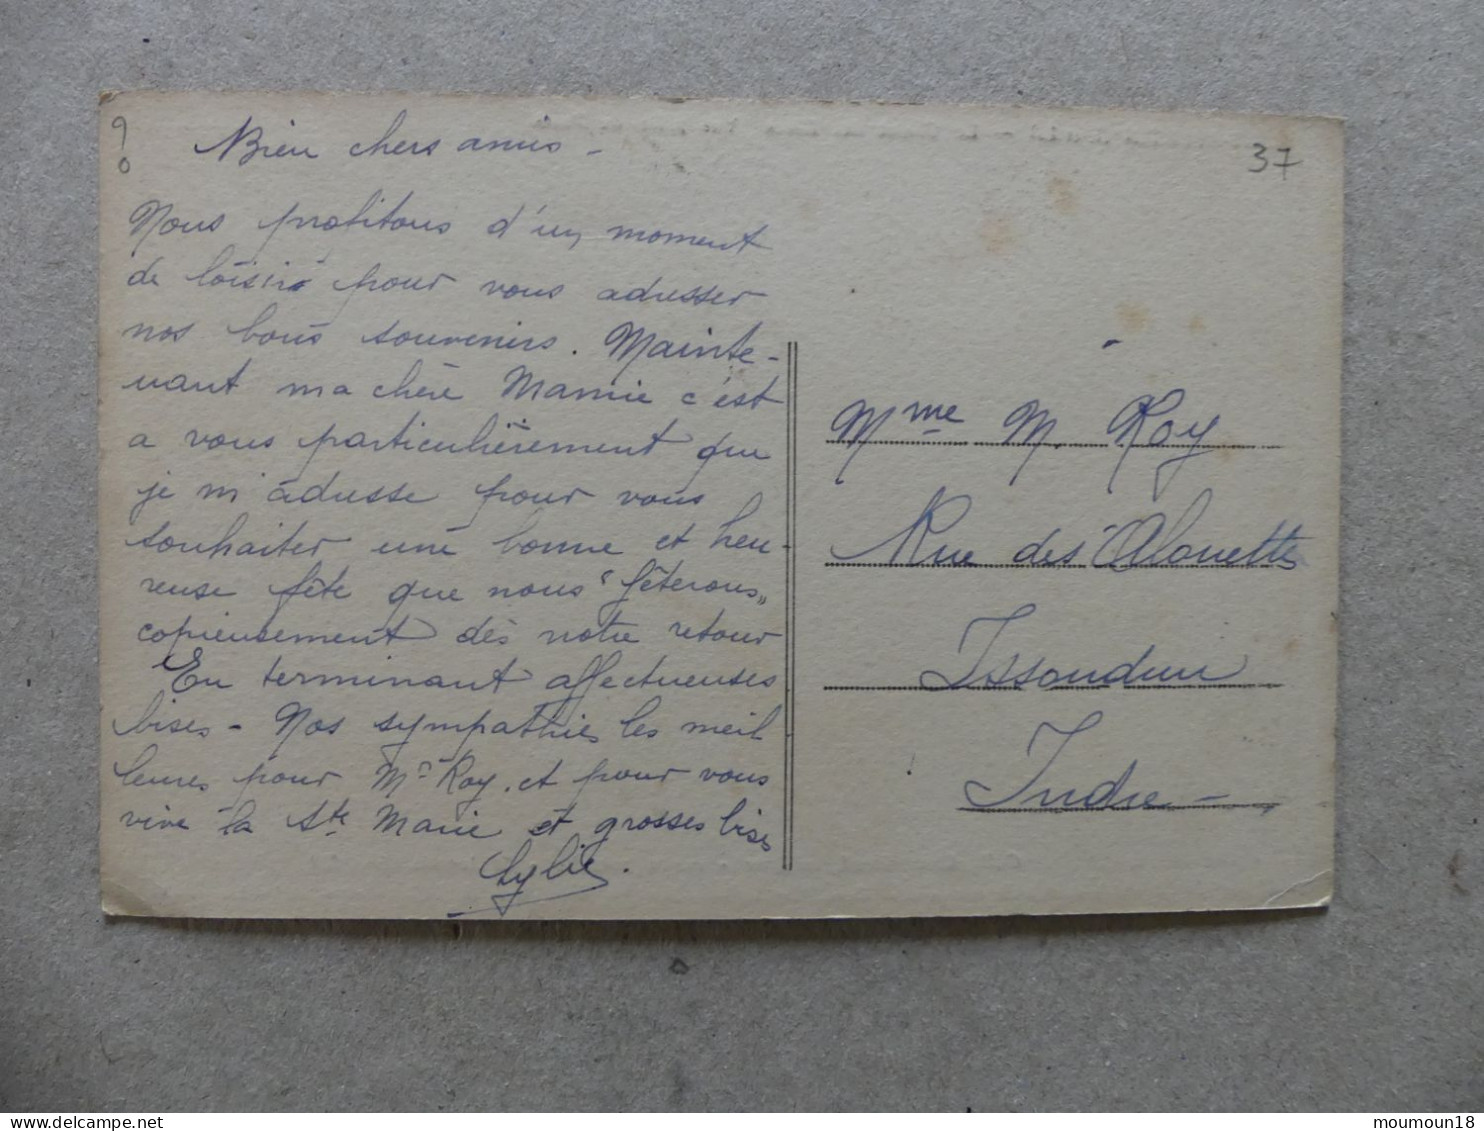 90
37
Bien chers amis -
Nous profitons d'un moment
de loisirs pour vous adresser
nos bons souvenirs. Mainte-
nant ma chère Mamie c'est
a vous particulièrement que
je m'adresse pour vous
souhaiter une bonne et heu-
reuse fête que nous "fêterons"
copieusement dès notre retour
En terminant affectueuses
bises - Nos sympathies les meil
leures pour Mr Roy. et pour vous
vive la Ste Marie et grosses bises
Mme M. Roy
Rue des Alouettes
Issoudun
Indre -
moumoun18